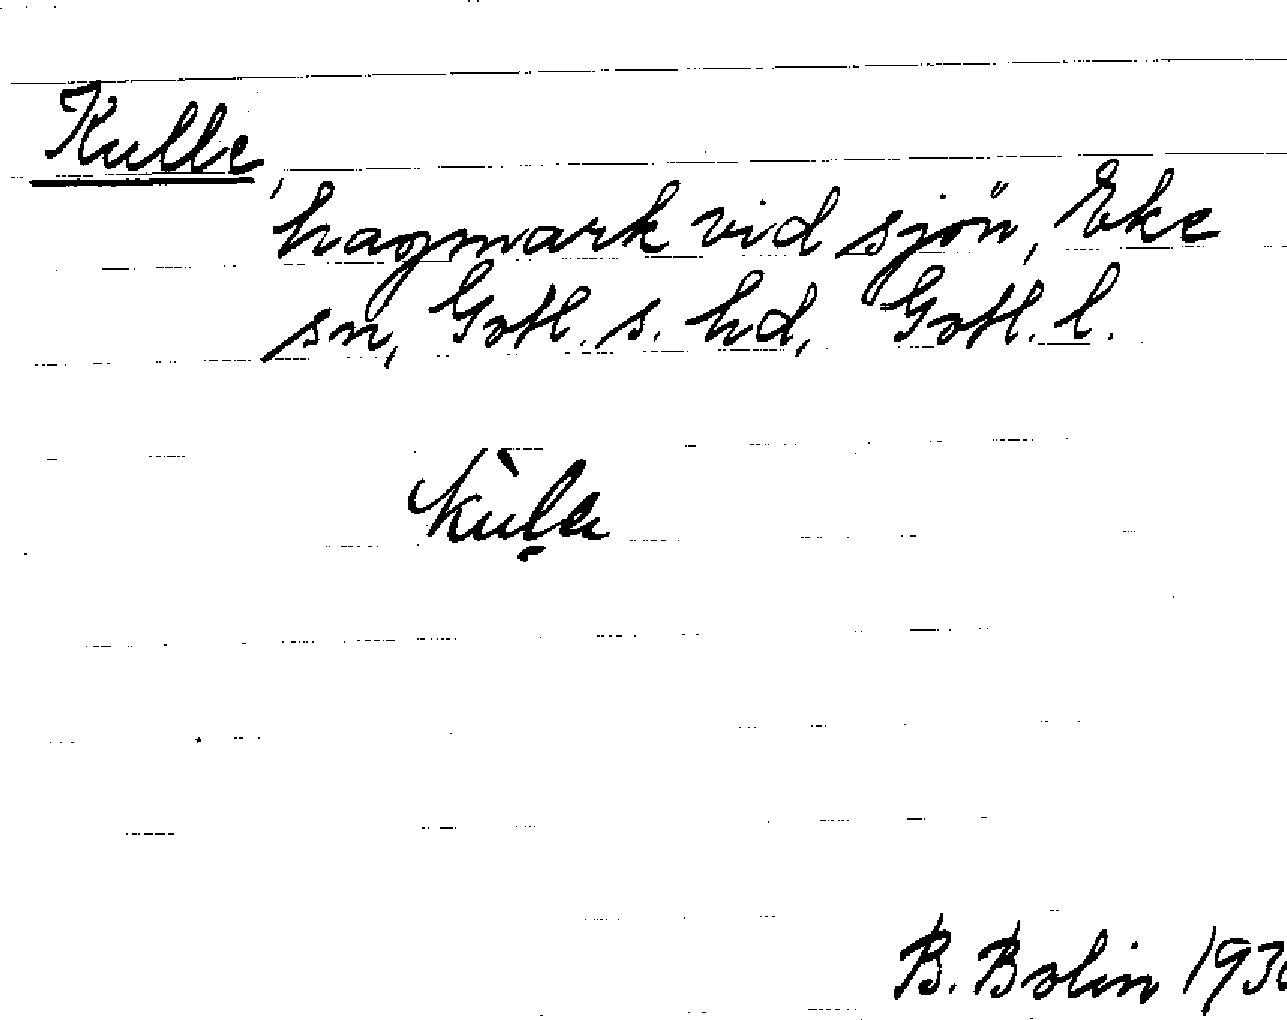 Kulle,
hagmark vid sjön, Eke
sn, Gotl. s. hd, Gotl. l.
B. Bolin